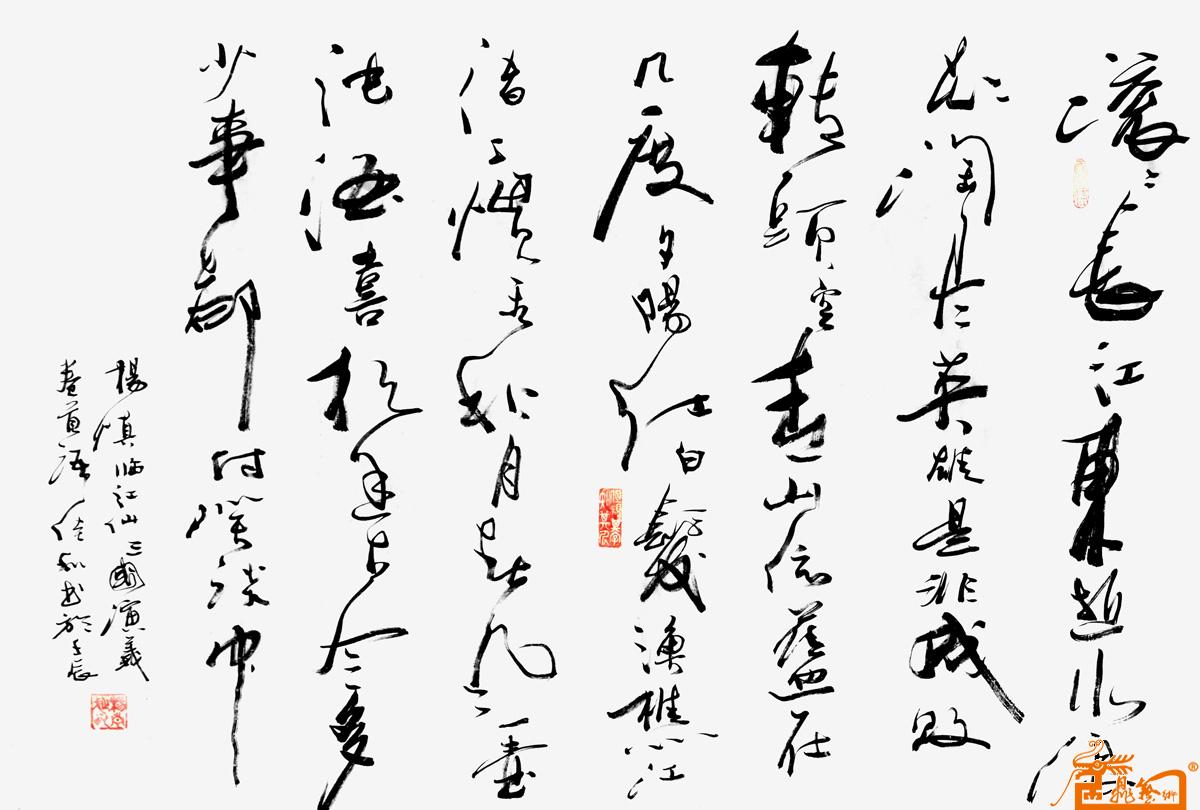 滚滚長江東逝水浪
花淘尽英雄是非成败
轉頭空青山依舊在
几度夕陽红白髮渔樵江
渚上惯看秋月春风一壶
浊酒喜相逢古今多
少事都付笑談中
楊慎临江仙三國演義
卷首語 书於壬辰